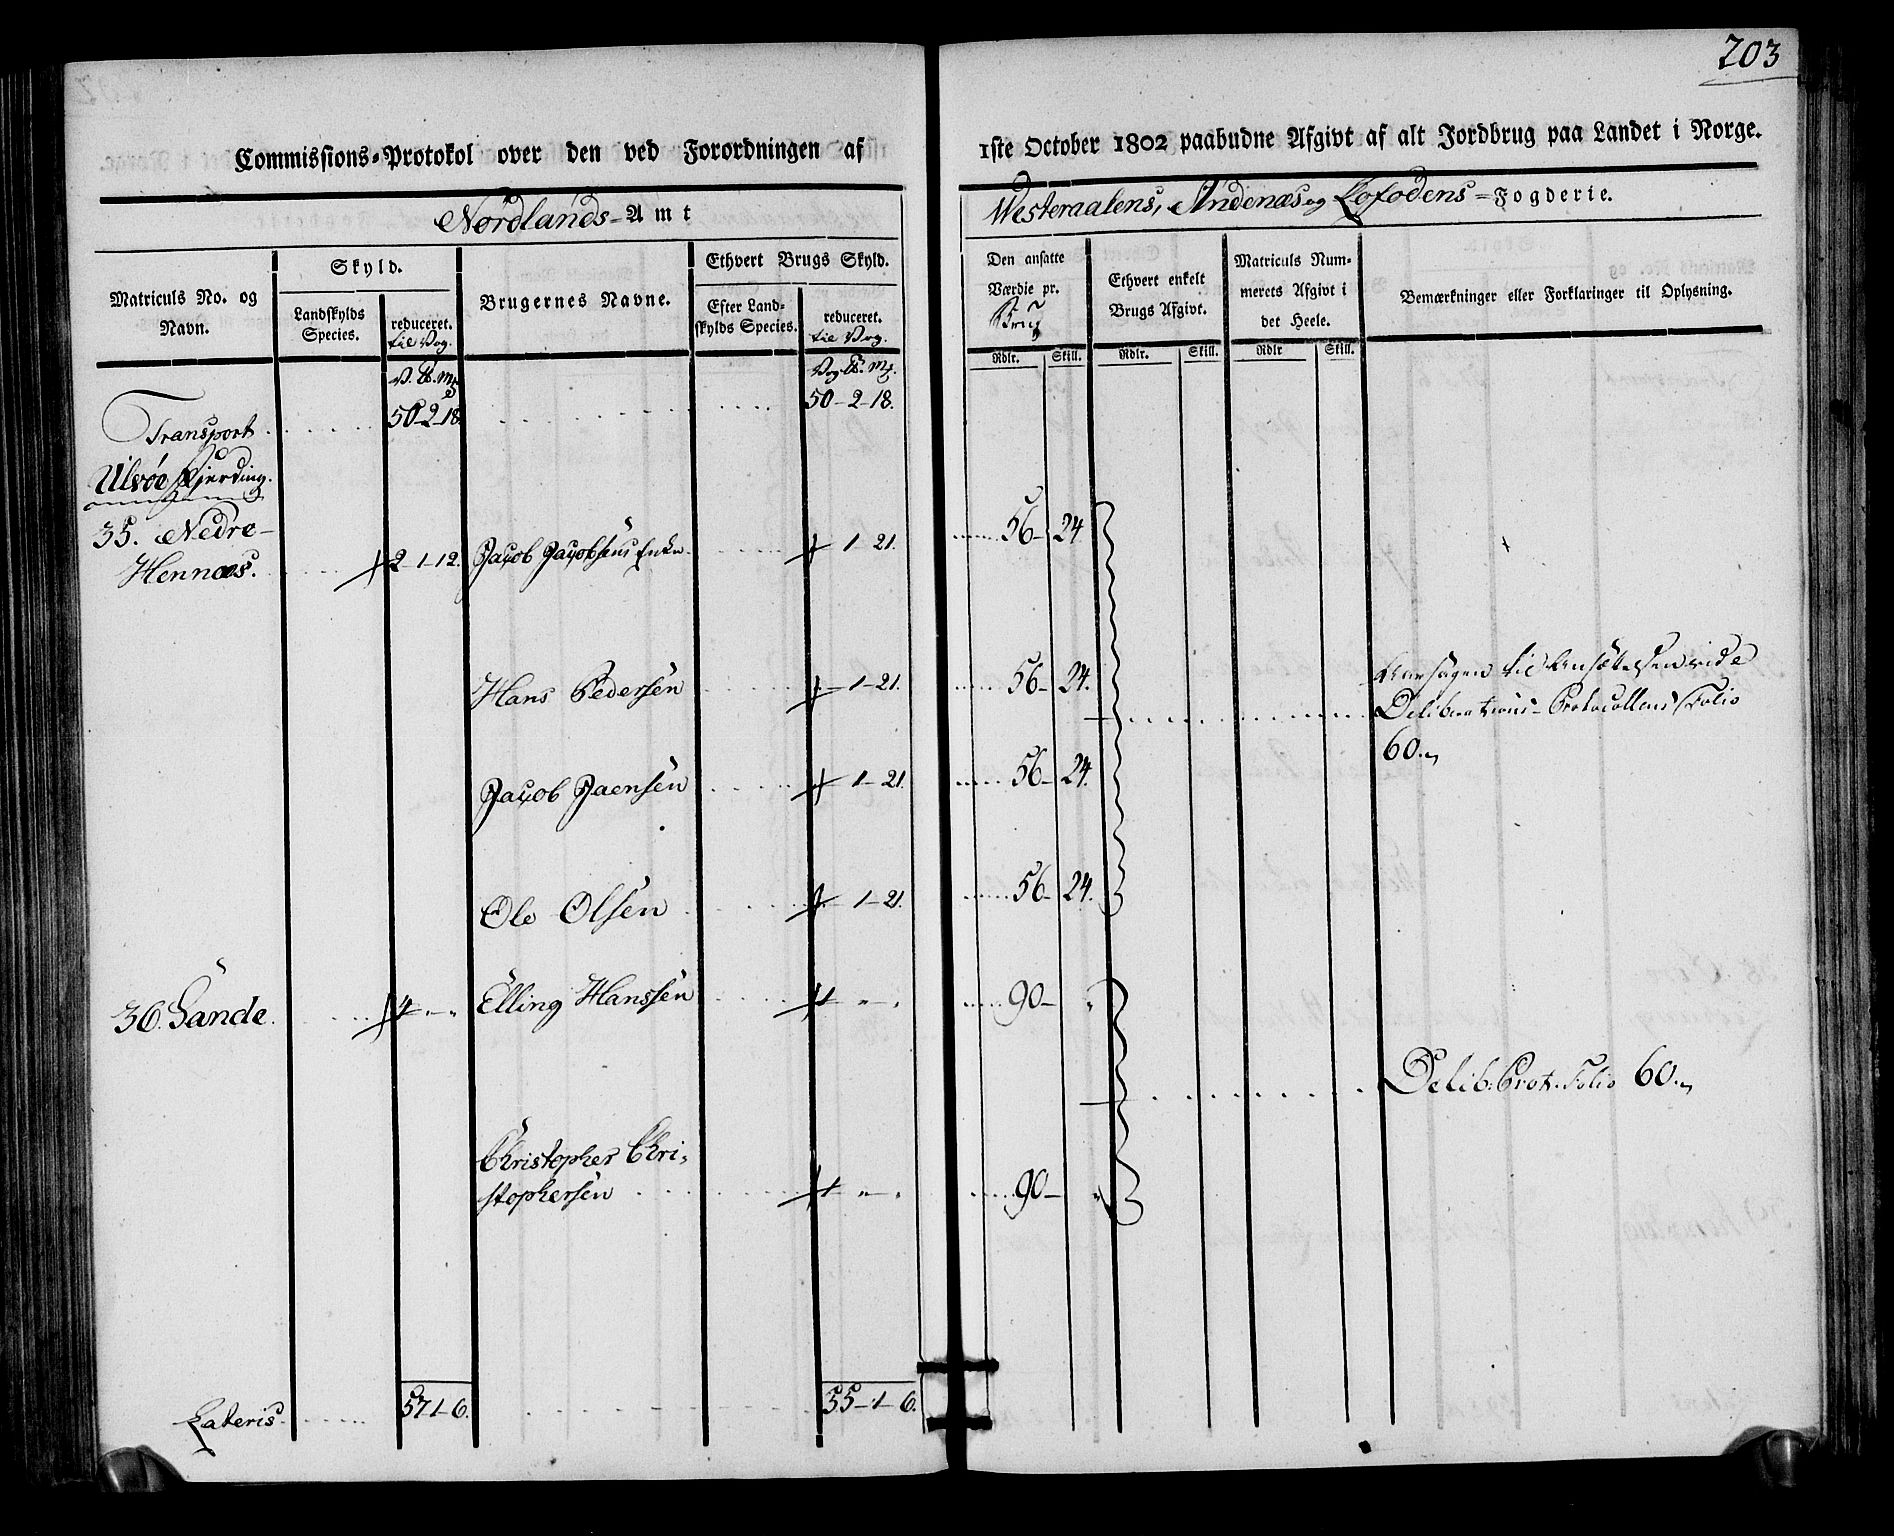 203
Commissions-Protokol over den ved Forordningen af 1ste October 1802 paabudne Afgivt af alt Jordbrug paa Landet i Norge.
Nordlands-Amt Westeraalens, Andenæs og Lofodens-Fogderie.
Matriculs No. og Navn. Skyld. Landskylds Species. reduceret. til Vog. Brugernes Navne. Ethvert Brugs Skyld. Efter Landskylds Species. reduceret. til Vog. Den ansatte Værdie pr. Brug Ethvert enkelt Brugs Afgivt. Matriculs Nummerets Afgivt i det Heele. Bemærkninger eller Forklaringer til Oplysning.
Rdlr. Skill. Rdlr. Skill. Rdlr Skill.
V. ℔. mk Vog ℔. mk.
Transport 50-2-18 50-2-18.
Ulvøe Fjerding.
35. Nedre-
Hennæs. 2-1-12. Jacob Jacobsens Enke 1-21. 56- 24
Hans Pedersen 1-21. 56- 24. til Ansættelsen vide
Deliberations-Protocollens Folio
60.
Jacob Jaensen 1-21. 56- 24.
Ole Olsen 1-21. 56- 24.
36. Sande. 4-"-" Elling Hanssen 1 "-" 90- "
Delib: Prot. Folio 60.
Christopher Chri-
stophersen 1 "-" 90- "
Lateris 57 1-6. 55-1-6.